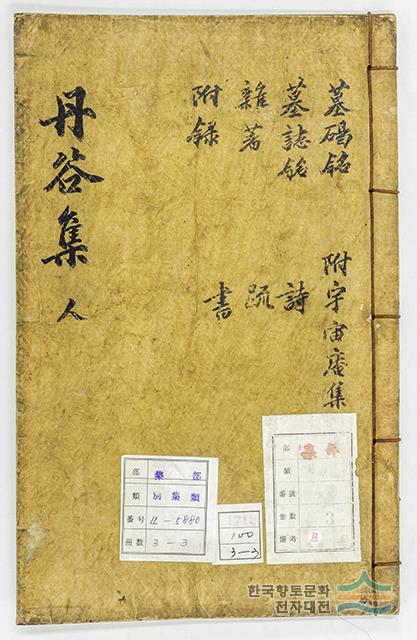 丹谷集 人
墓碣銘
墓誌銘
雜著
附錄
附宇宙庵集
詩
疏
書
部 集部
類 別集類
番号 11-5880
冊数 3-3
100
3-3
部
類
番號
冊數
備考
3
한국향토문화
전자대전